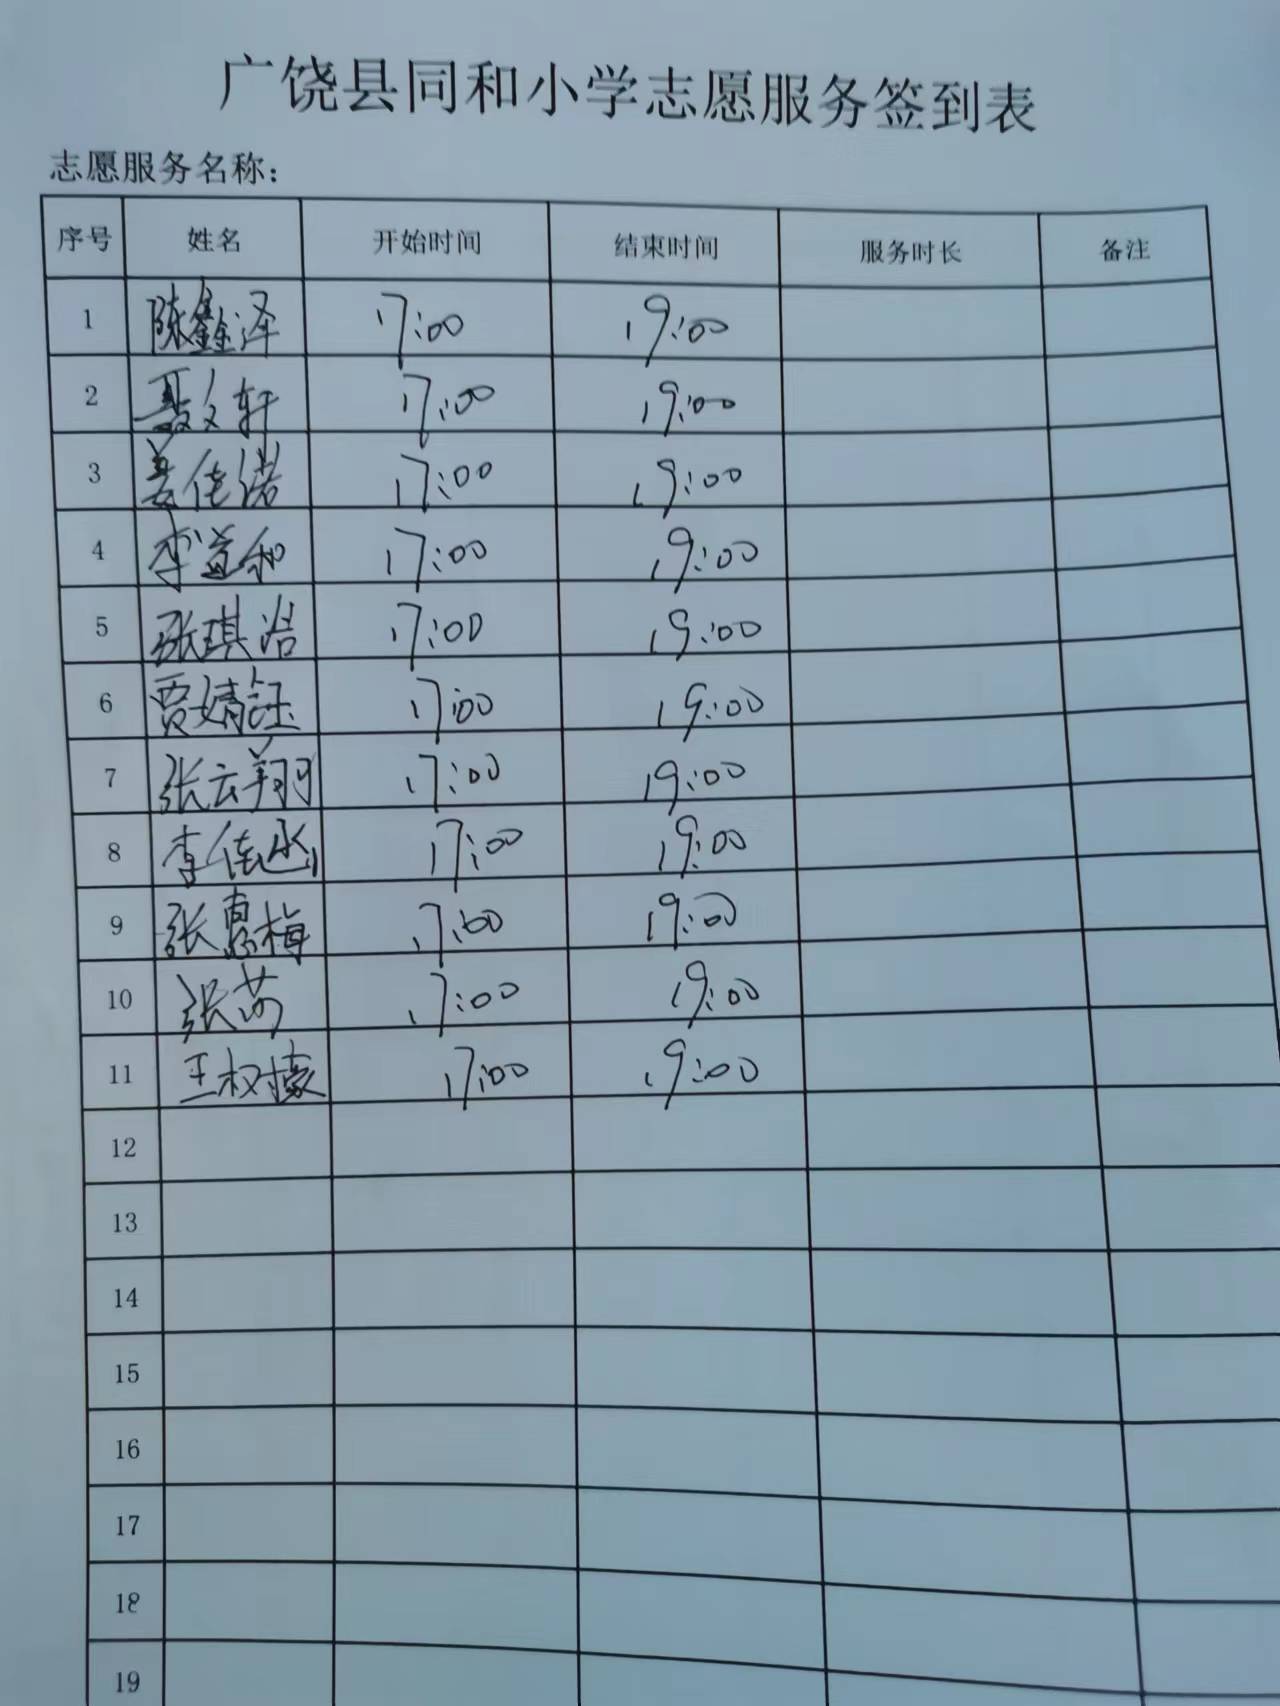 广饶县同和小学志愿服务签到表
志愿服务名称：
序号 姓名 开始时间 结束时间 服务时长 备注
1 陈鑫泽 17:00 19:00
2 聂文轩 17:00 19:00
3 姜佳诺 17:00 19:00
4 李道和 17:00 19:00
5 张琪浩 17:00 19:00
6 贾婧钰 17:00 19:00
7 张云翔 17:00 19:00
8 李佳 17:00 19:00
9 张惠梅 17:00 19:00
10 张 17:00 19:00
11 王权 17:00 19:00
12
13
14
15
16
17
18
19